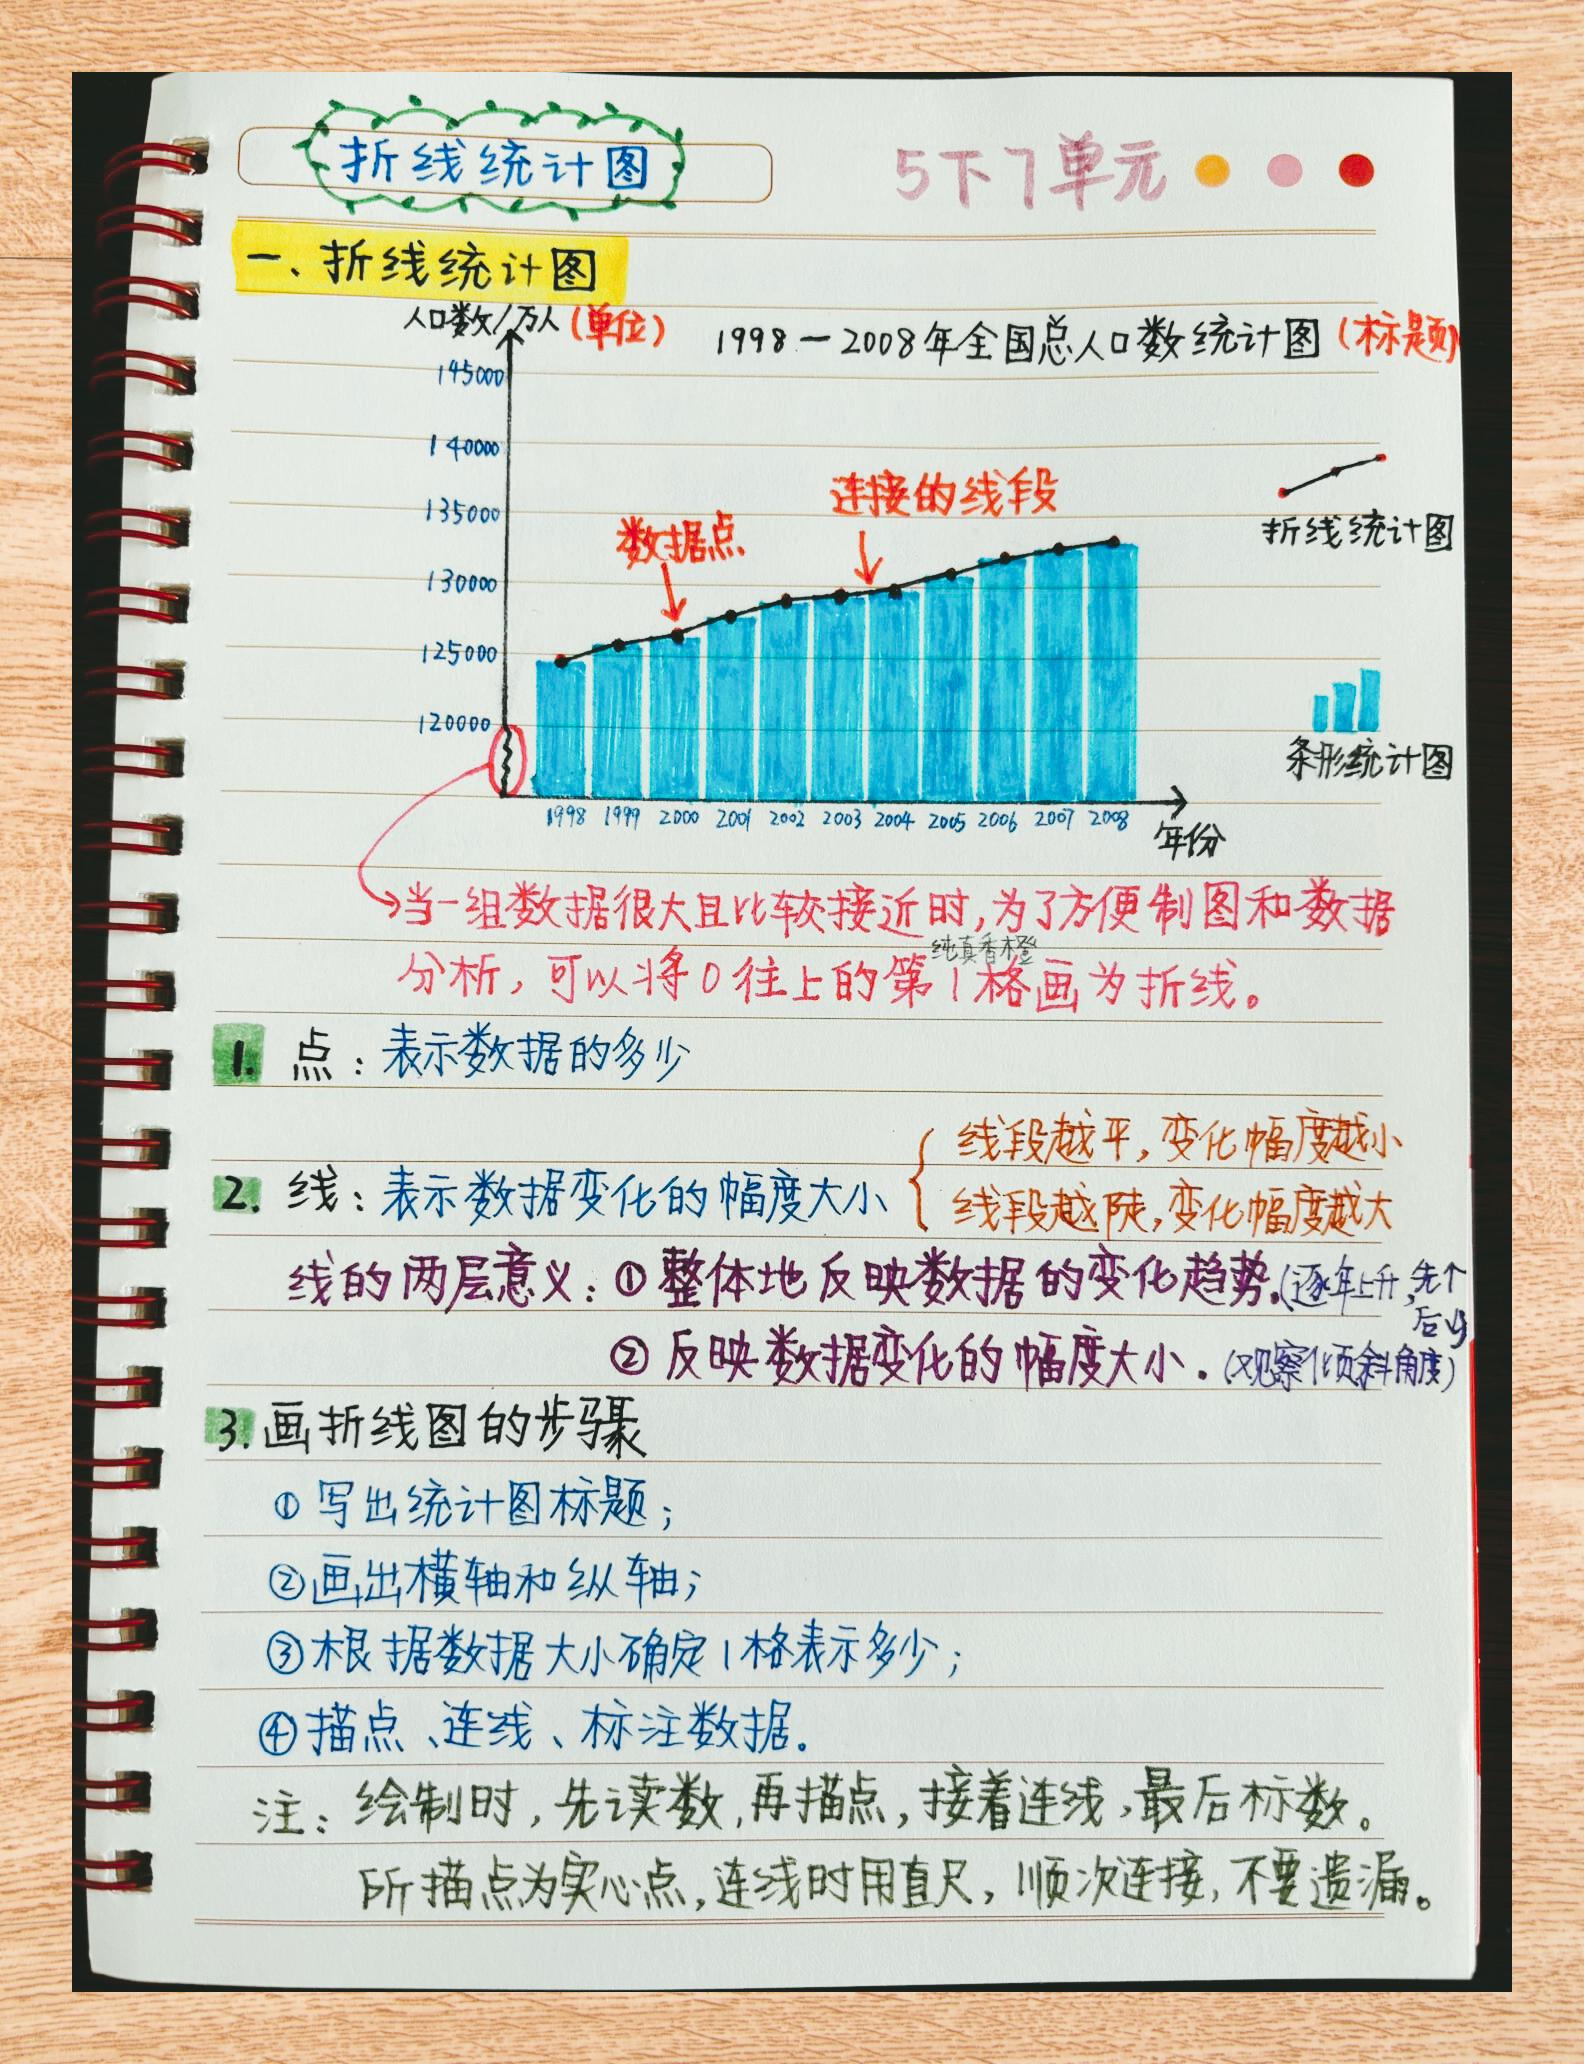 折线统计图
5下7单元
一、折线统计图
人口数/万人(单位)
1998-2008年全国总人口数统计图(标题)
145000
140000
135000
130000
125000
120000
数据点
连接的线段
折线统计图
条形统计图
1998 1999 2000 2001 2002 2003 2004 2005 2006 2007 2008
年份
当一组数据很大且比较接近时,为了方便制图和数据
纯真香橙
分析,可以将0往上的第1格画为折线。
1. 点:表示数据的多少
线段越平,变化幅度越小
2. 线:表示数据变化的幅度大小
线段越陡,变化幅度越大
线的两层意义:①整体地反映数据的变化趋势。(逐年上升,先个
后少
②反映数据变化的幅度大小。(观察倾斜角度)
3.画折线图的步骤
①写出统计图标题;
②画出横轴和纵轴;
③根据数据大小确定1格表示多少;
④描点、连线、标注数据。
注:绘制时,先读数,再描点,接着连线,最后标数。
所描点为实心点,连线时用直尺,顺次连接,不要遗漏。